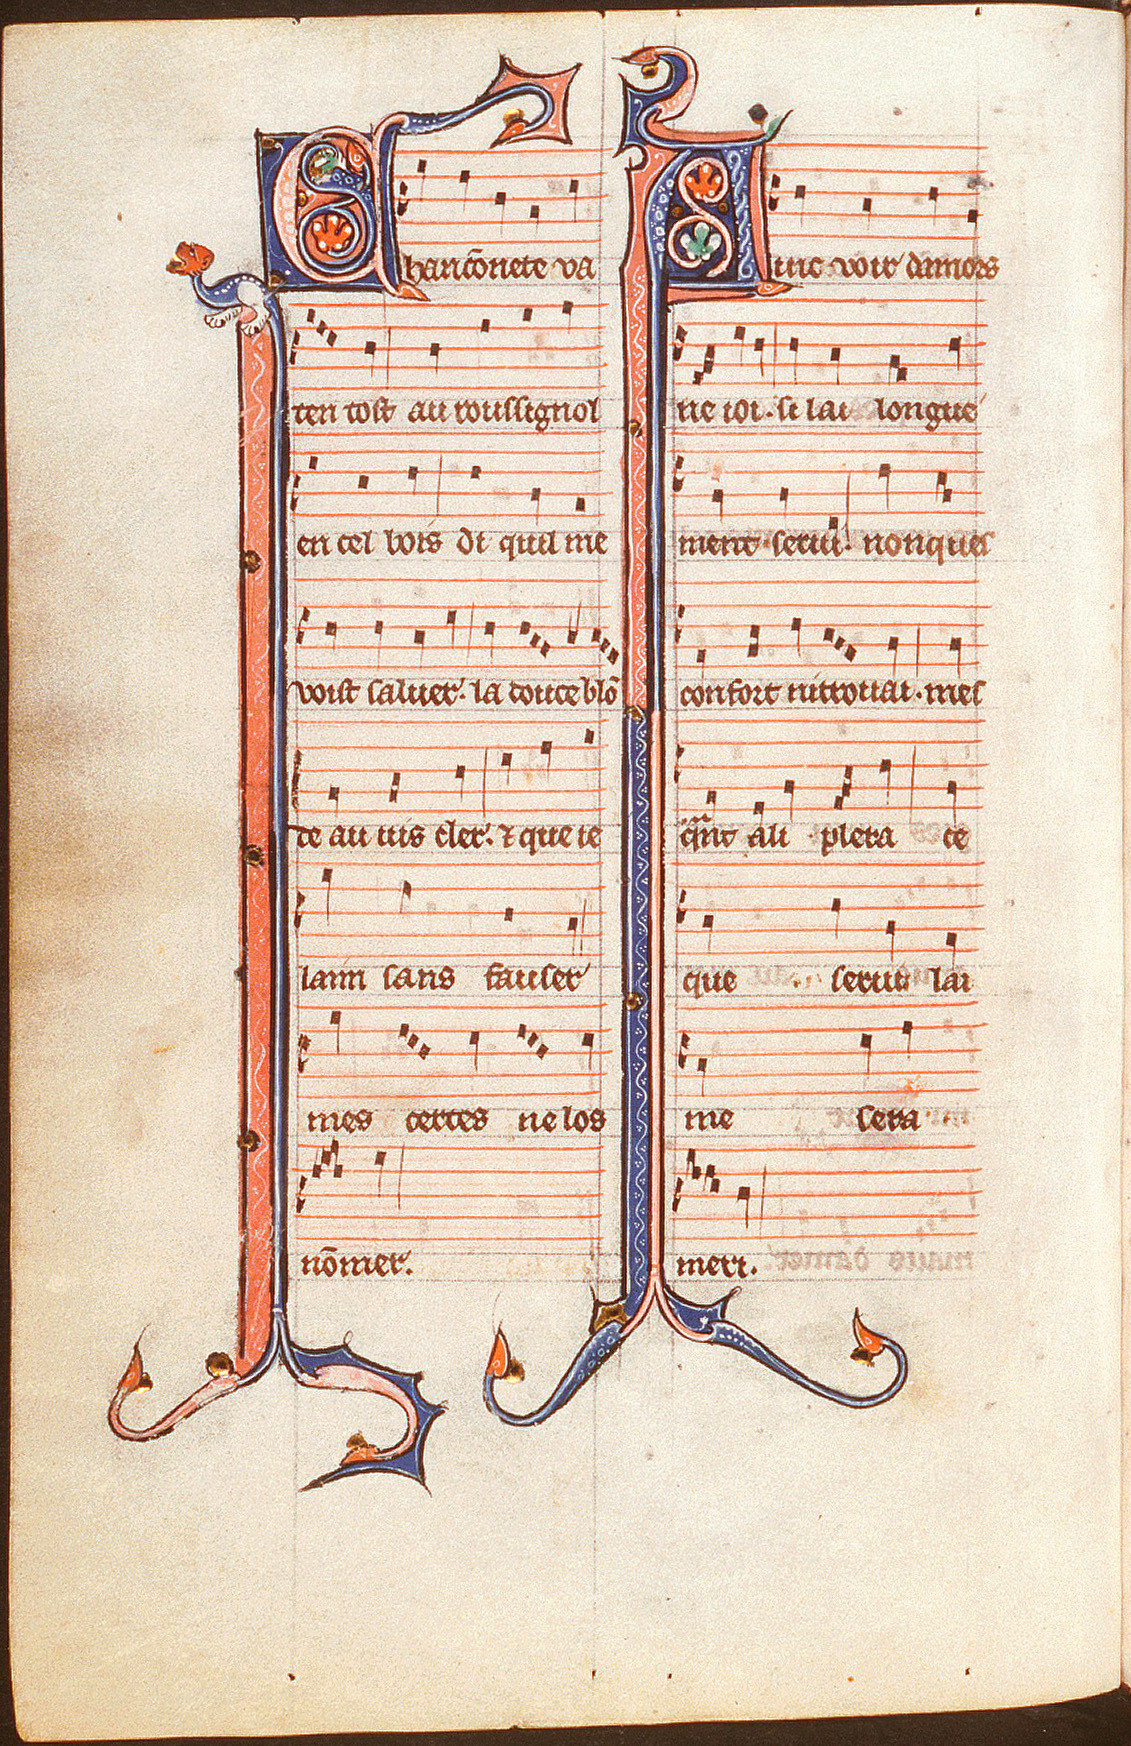 Chanconete va
ten tost au roussignol
en cel bois di quil me
voist saluer. la douce blō
de au uis cler. ⁊ que ie
laim sans fauser
mes certes ne los
nōmer.
Ainc voir damors
ne ioi. si lai longue
ment serui. nonques
confort nitrouai. mes
qᵃnt ali plera ce
que serui lai
me sera
meri.